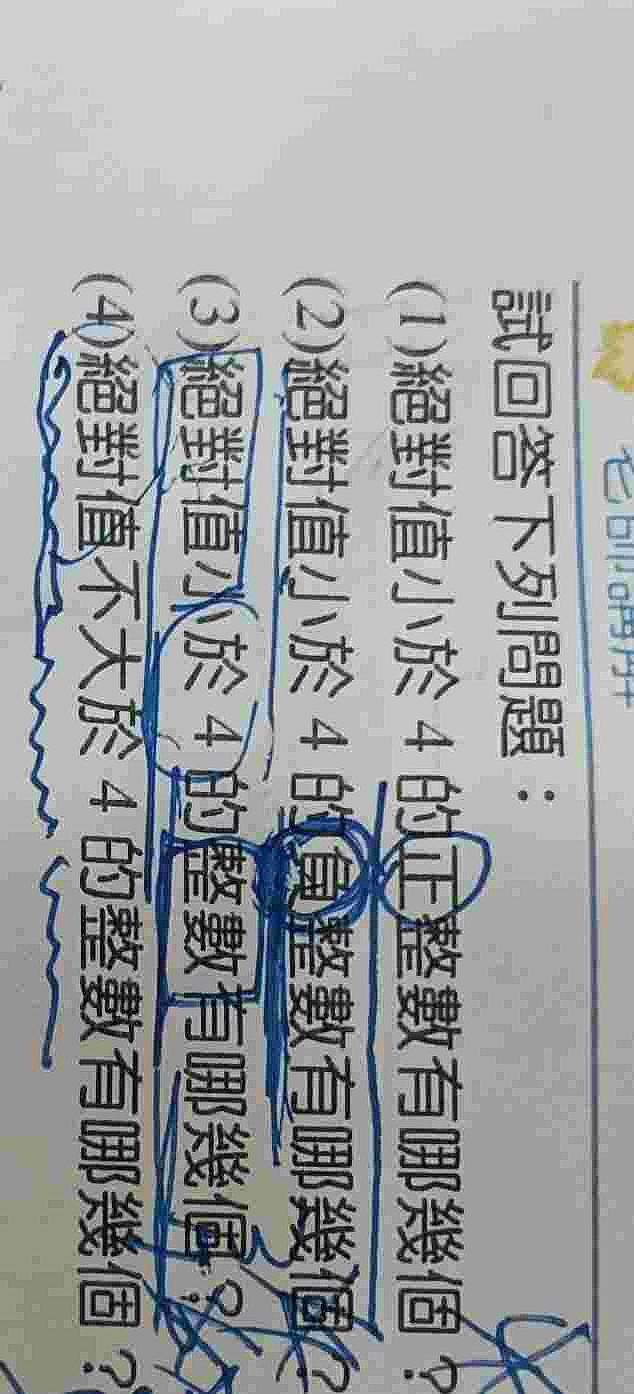 試回答下列問題：
(1)絕對值小於 4 的正整數有哪幾個？
(2)絕對值小於 4 的負整數有哪幾個？
(3)絕對值小於 4 的整數有哪幾個？
(4)絕對值不大於 4 的整數有哪幾個？